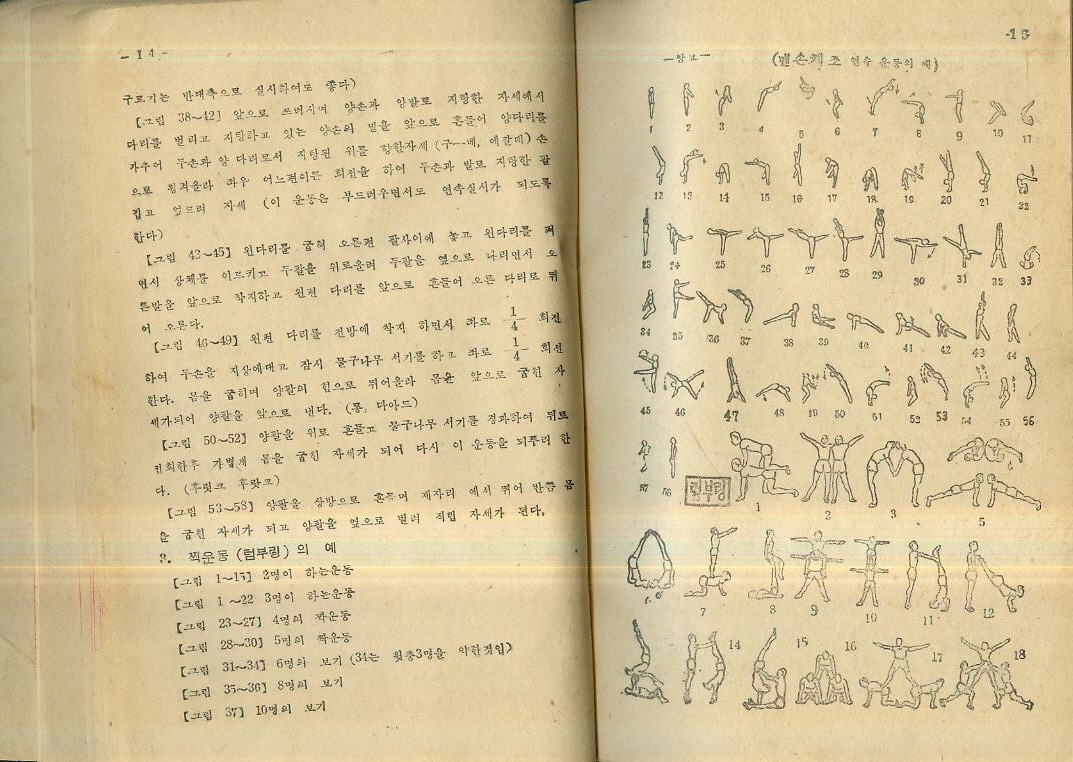 - 14 -
구르기는 반대측으로 실시하여도 좋다)
【그림 38~42】 앞으로 쓰러지며 양손과 양발로 지탕한 자세에서
다리를 벌리고 지탕하고 있는 양손의 밑을 앞으로 흔들어 양다리를
가추어 두손과 양다리로서 지탕된 위를 향한자세 (구—메, 에갈데) 손
으로 튕겨올라 좌우 어느편이든 회전을 하여 두손과 발로 지탕한 팔
집고 엎드려 자세 (이 운동은 부드러우면서도 연속실시가 되도록
한다)
【그림 43~45】 왼다리를 굽혀 오른편 팔사이에 놓고 왼다리를 펴
면서 상체를 이르키고 두팔을 위로올려 두팔을 옆으로 나리면서 오
른발을 앞으로 착지하고 왼편 다리를 앞으로 흔들어 오른 다리로 뛰
어 오른다.
【그림 46~49】 왼편 다리를 전방에 착지 하면서 좌로 1/4 회전
하여 두손을 지상에대고 잠시 물구나무 서기를 하고 좌로 1/4 회전
한다. 몸을 굽히며 양팔의 힘으로 뛰어올라 몸을 앞으로 굽힌 자
세가되어 양팔을 앞으로 낸다. (롱, 다아드)
【그림 50~52】 양팔을 위로 흔들고 물구나무 서기를 경과하여 뒤로
전회한후 가볍게 몸을 굽힌 자세가 되어 다시 이 운동을 되푸리 한
다. (후릿크 후랏크)
【그림 53~58】 양팔을 상방으로 흔들며 제자리 에서 뛰어 반쯤 몸
을 굽힌 자세가 되고 양팔을 옆으로 벌려 직립 자세가 된다.
3. 짝운동 (텀부링) 의 예
【그림 1~15】 2명이 하는운동
【그림 1~22 3명이 하는운동
【그림 23~27】 4명의 짝운동
【그림 28~30】 5명의 짝운동
【그림 31~34】 6명의 보기 (34는 윗층3명을 약한것임)
【그림 35~36】 8명의 보기
【그림 37】 10명의 보기
-15
—참고— (맨손체조 연수 운동의 예)
1 2 3 4 5 6 7 8 9 10 11
12 13 14 15 16 17 18 19 20 21 22
23 24 25 26 27 28 29 30 31 32 33
34 35 36 37 38 39 40 41 42 43 44
45 46 47 48 49 50 51 52 53 54 55 56
57 58 텀부링 1 2 3 5
6 7 8 9 10 11 12
14 15 16 17 18